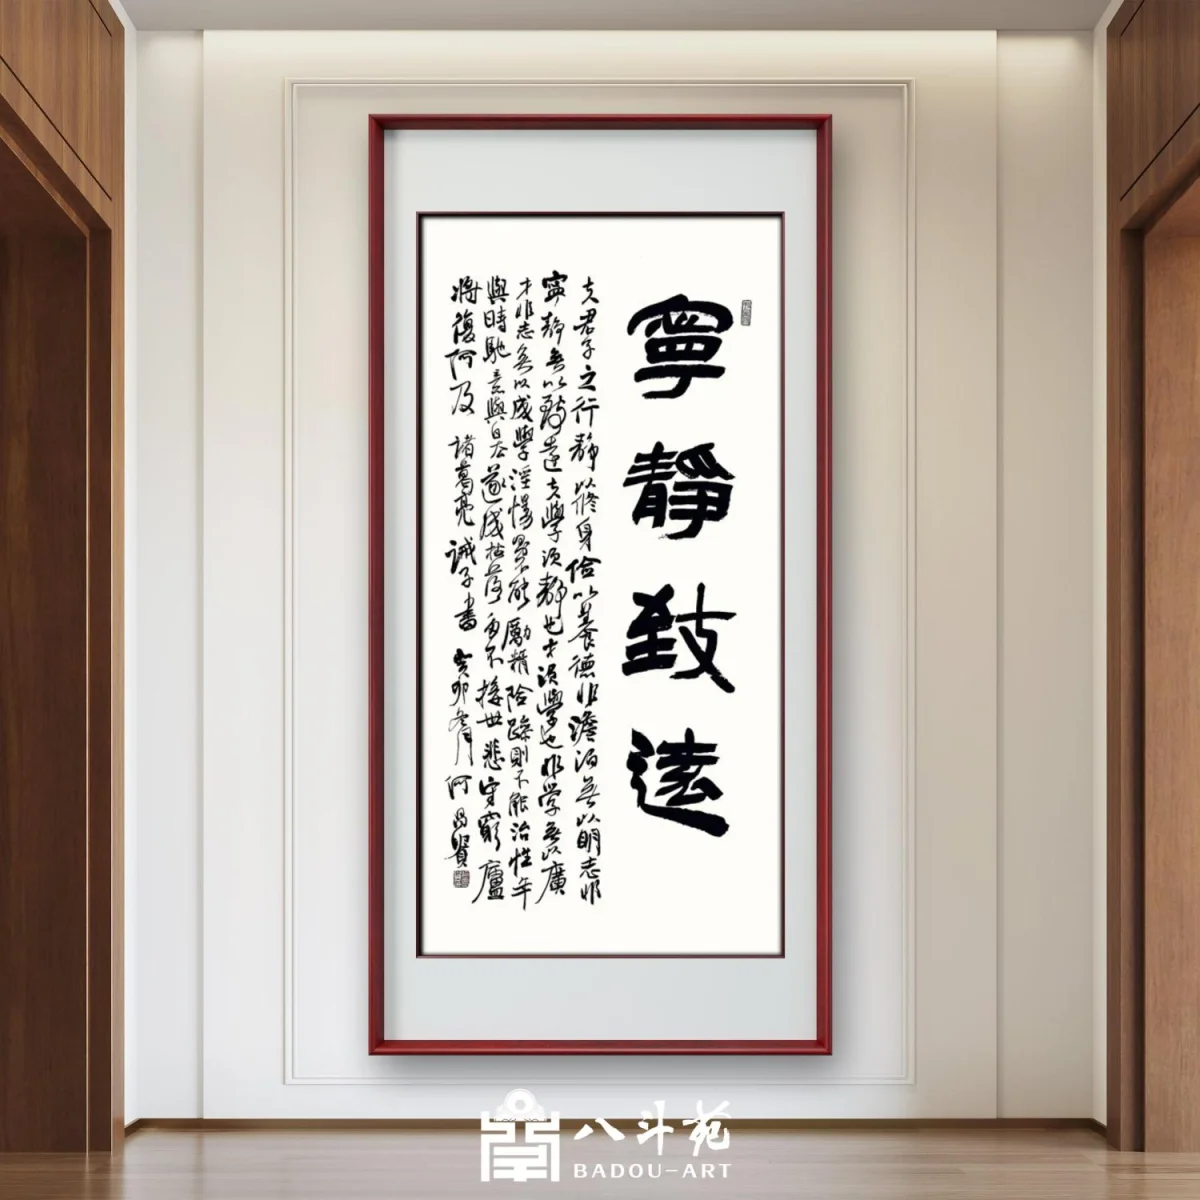 寧靜致遠
夫君子之行靜以修身儉以養德非澹泊無以明志非
寧靜無以致遠夫學須靜也才須學也非學無以廣
才非志無以成學淫慢則不能勵精險躁則不能治性年
與時馳意與日去遂成枯落多不接世悲守窮廬
將復何及 諸葛亮誡子書 癸卯冬月 何
八斗苑
BADOU-ART